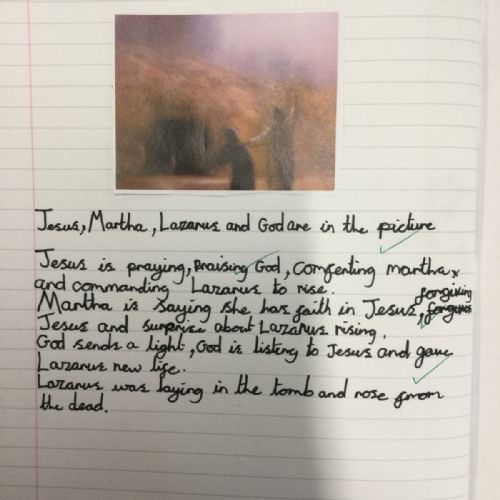 Jesus, Martha, Lazarus and God are in the picture
Jesus is praying, praising God, comfenting martha,
and commanding Lazarus to rise.
forgiving
Martha is saying she has faith in Jesus,
Jesus and surprise about Lazarus rising.
God sends a light, God is listing to Jesus and gave
Lazarus new life.
Lazarus was laying in the tomb and rose from
the dead.